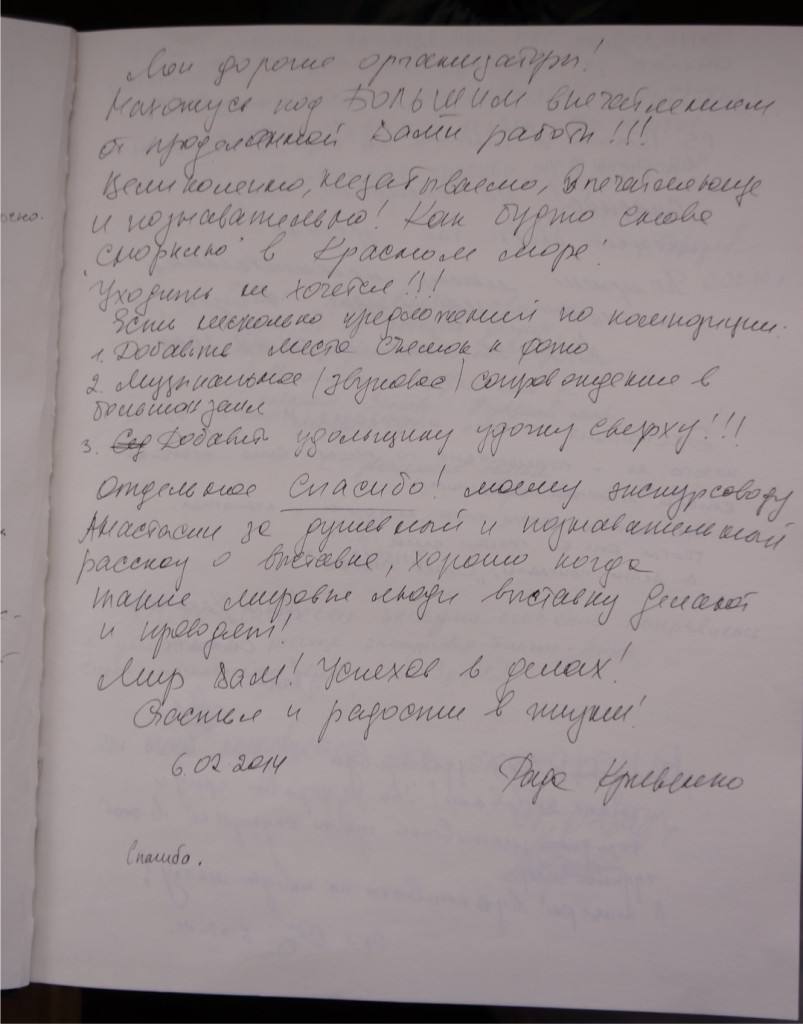 Мои дорогие организаторы!
Нахожусь под БОЛЬШИМ впечатлением
от проделанной Вами работы!!!
Великолепно, незабываемо, впечатляюще
и познавательно! Как будто снова
"сноркаю" в Красном море!
Уходить не хочется!!!
Есть несколько предложений по композиции.
1. Добавить места съемок к фото
2. Музыкальное (звуковое) сопровождение в
большом зале
3. Добавить удильщику удочку сверху!!!
Отдельное Спасибо! моему экскурсоводу
Анастасии за душевный и познавательный
рассказ о выставке, хорошо когда
такие мировые люди выставку делают
и проводят!
Мир Вам! Успехов в делах!
Счастья и радости в жизни!
6.02.2014
Рада Кривенко
Спасибо.